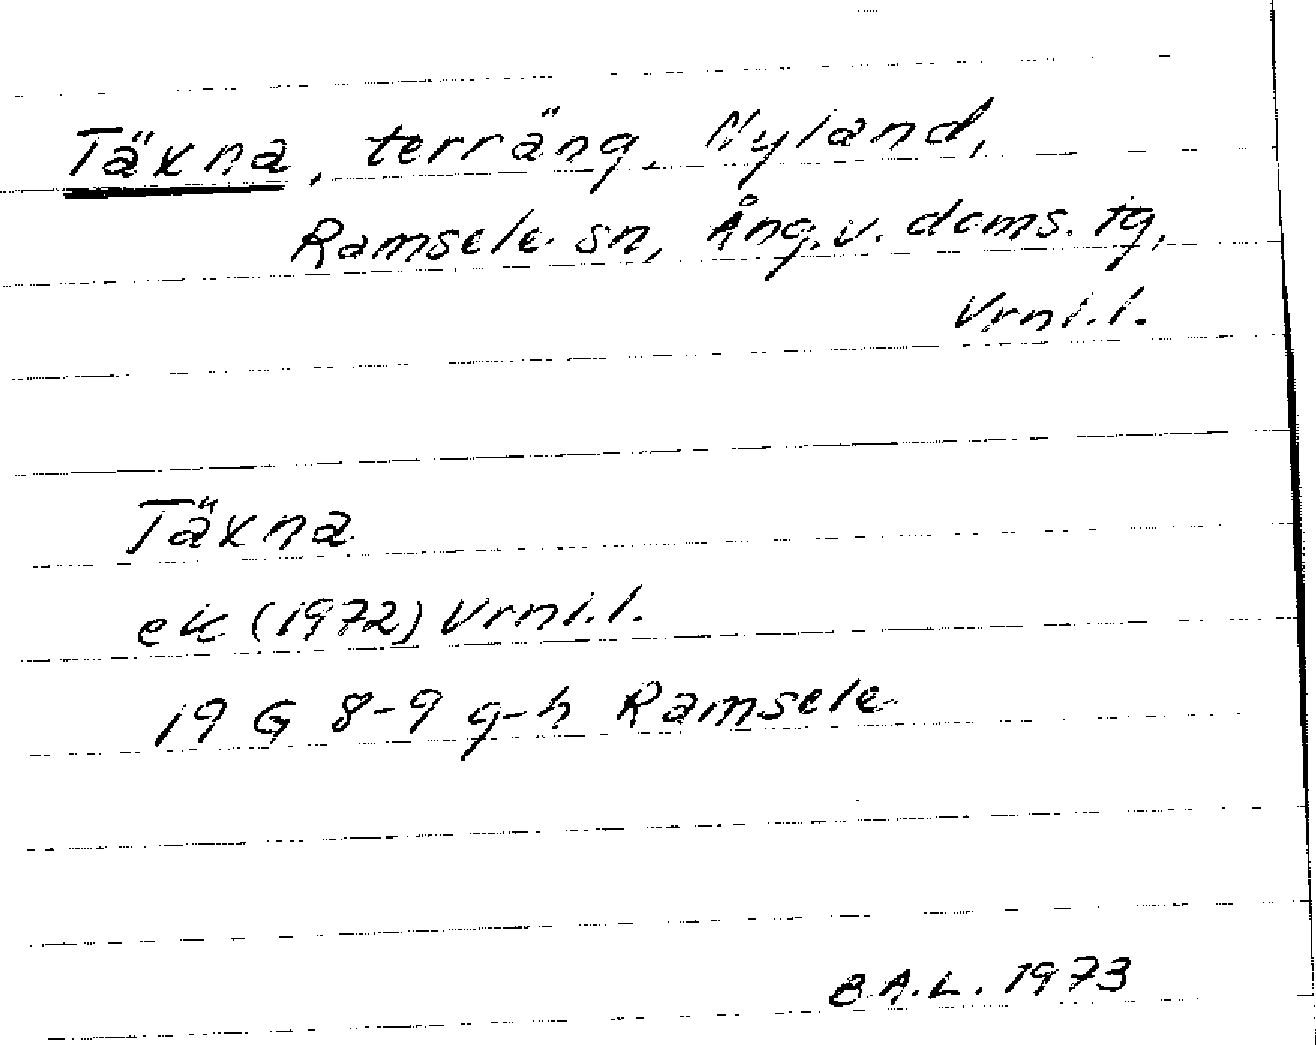 Täxna, terräng, Nyland,
Ramsele sn, Ång. v. doms. tg,
Vrnl. l.
Täxna
ek (1972) Vrnl. l.
19 G 8-9 g-h Ramsele
B.A.L. 1973